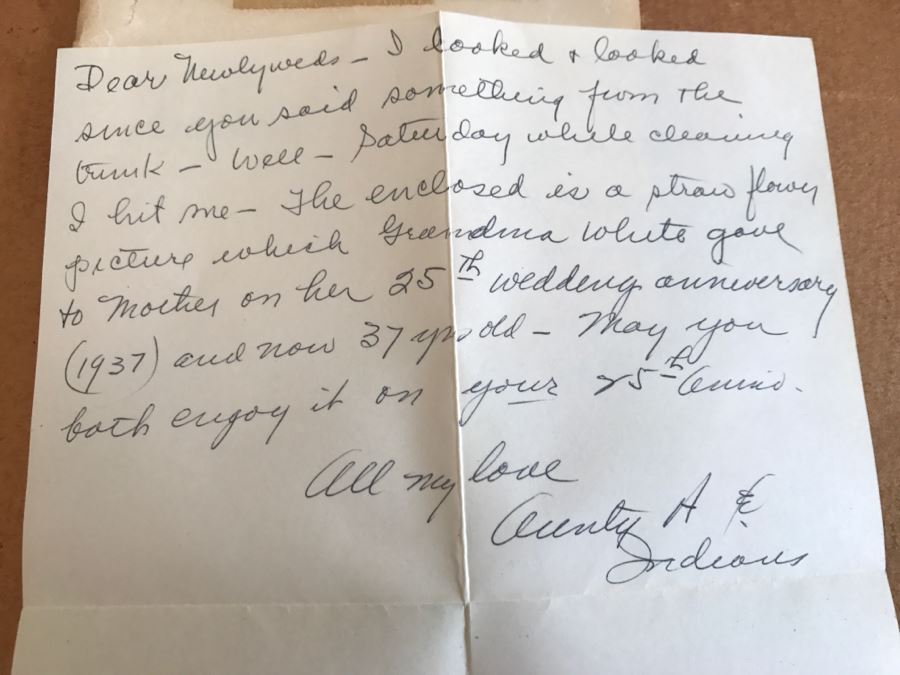 Dear Newlyweds - I looked + looked
since you said something from the
trunk - Well - Saturday while cleaning
I hit me - The enclosed is a straw flower
picture which Grandma White gave
to Mother on her 25th wedding anniversary
(1937) and now 37 yrs old - May you
both enjoy it on your 25th Anniv.
All my love
Aunty A &
Indians